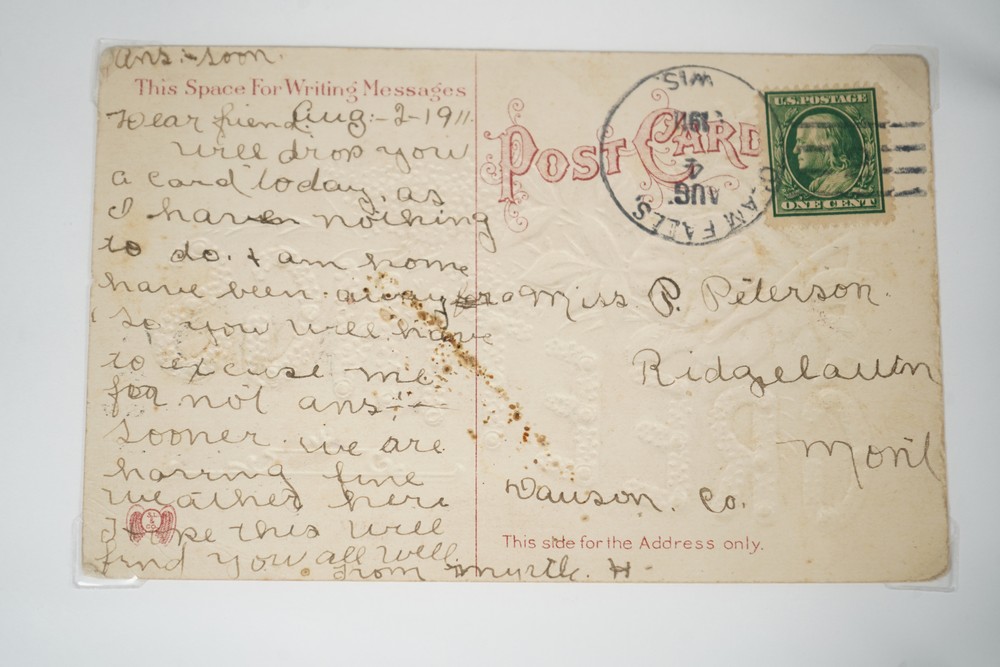 Ans :- soon.
This Space For Writing Messages
Dear friend. Aug:-2-1911.
Will drop you
a card today. as
I haven nothing
to do. I am home
have been away for a
so you will have
to excuse me
for not ans :-
sooner. we are
having fine
weather here
Hope this will
find you all well.
from Myrtle. H
POST CARD
WIS.
1911
4
AUG.
AM FALLS,
U.S. POSTAGE
ONE CENT
Miss P. Peterson.
Ridgelawn
Mont
Dawson. Co.
This side for the Address only.